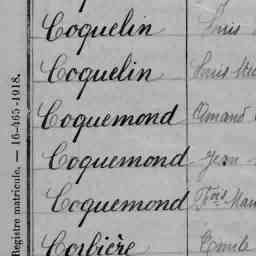 Coquelin Louis
Coquelin Louis
Coquemond Amand
Coquemond Jean
Coquemond Fçois Mau
Corbière Emile
Registre matricule. — 16-465-1918.